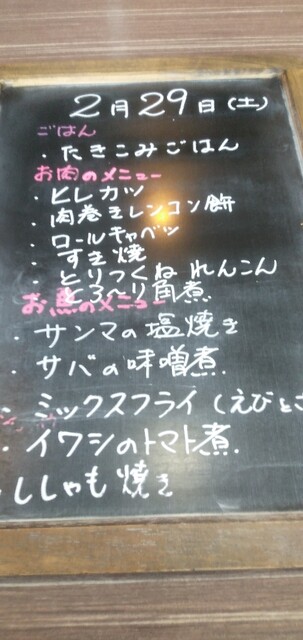 2月29日(土)
ごはん
・たきこみごはん
お肉のメニュー
・ヒレカツ
・肉巻きレンコン餅
・ロールキャベツ
・すき焼
・とりつくね れんこん
とろ〜り角煮
お魚のメニュー
・サンマの塩焼き
・サバの味噌煮
・ミックスフライ(えびと
・イワシのトマト煮
・ししゃも焼き